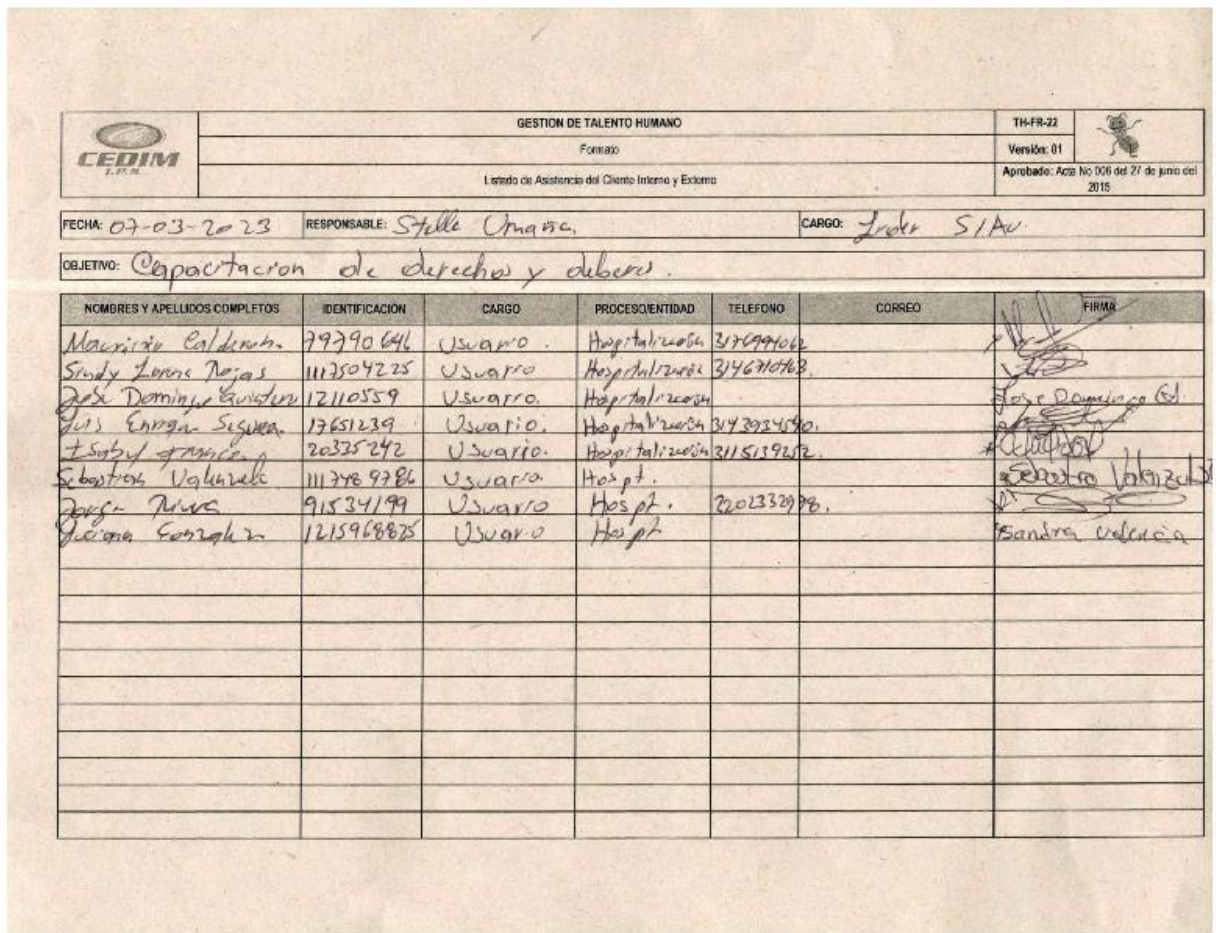 GESTION DE TALENTO HUMANO
TH-FR-22
CEDIM
I.P.S.
Formato
Versión: 01
Listado de Asistencia del Cliente Interno y Externo
Aprobado: Acta No 006 del 27 de junio del
2015
FECHA: 07-03-2023 RESPONSABLE: Stella Umaña CARGO: S/Au
OBJETIVO: Capacitacion de derechos y deberes.
NOMBRES Y APELLIDOS COMPLETOS IDENTIFICACIÓN CARGO PROCESO/ENTIDAD TELEFONO CORREO FIRMA
Mauricio Calderon. 79790646 Usuario. Hospitalización 3176994062
Sindy Lorena Rojas 1117504225 Usuario Hospitalización 3146710463.
Jose Domingo 12110559 Usuario. Hospitalización Jose Domingo
Luis 17651239 Usuario. Hospitalización 3143934540.
20335242 Usuario. Hospitalización 3115139252.
Sebastian Valenzuela 1117489786 Usuario. Hospt.
Jorge 91534199 Usuario Hospt. 2202332978.
Gonzalez 1215968825 Usuario Hospt Sandra Valencia